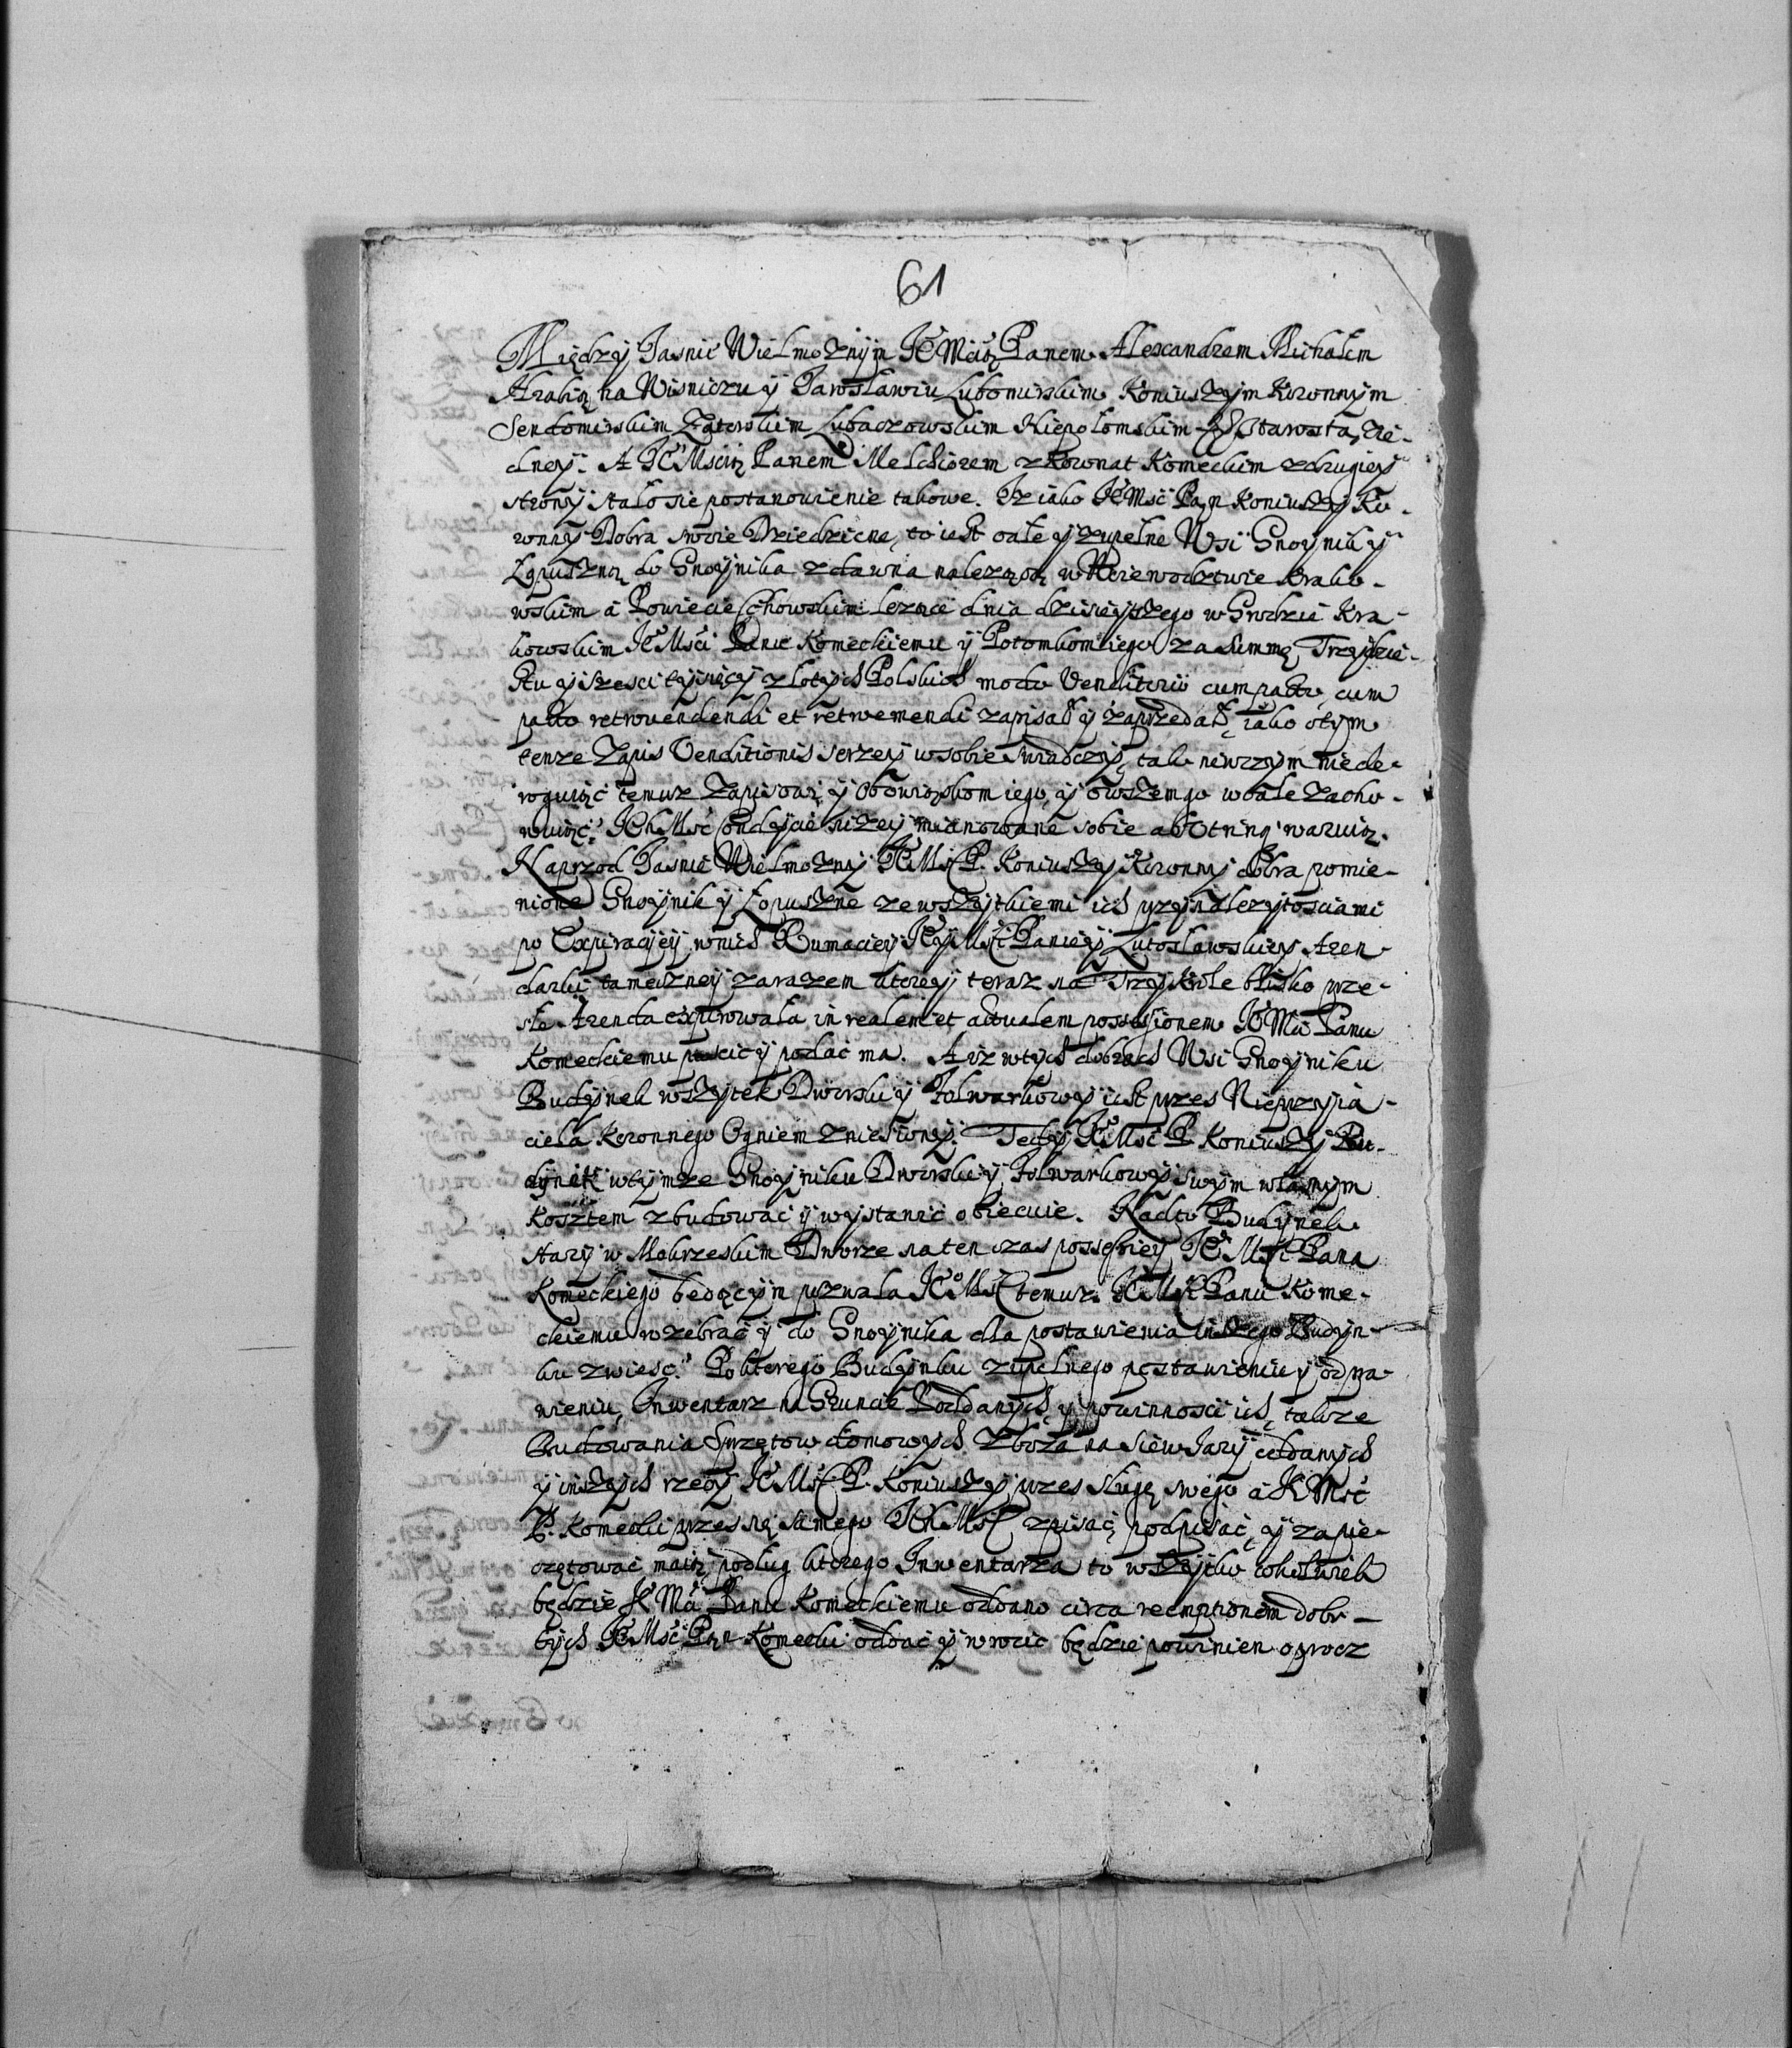 61
Między Jasnie Wielmożnym JE Mścią Panem Alexandrem Michałem
Hrabią na Wisniczu y Jarosławiu Lubomirskim Koniuszym Koronnym
Sendomirskim Zatorskim Lubaczowskim Niepołomskim Starostą, z ie-
dney. A JE Mścią Panem Melchiorem z Kownat Komeckim z drugiey
strony stało sie postanowienie takowe. Iz iako JE Mść Pan Koniuszy Ko-
ronny Dobra swoie Dziedziczne, to iest całe y zupełne Wsi Gnoynik y
Łopuszną do Gnoynika zdawna nalezącą w Woiewodztwie Krako-
wskim a Powiecie Czchowskim lezące dnia dzisieyszego w Grodzie Kra-
kowskim JE Mści Panu Komeckiemu y Potomkom iego za summę Trzydzie-
stu y sześci tysięcy złotych Polskich modo Venditorio cum pacto, cum
pacto retrovendendi et retroemendi zapisał y zaprzedał, iako o tym
tenze Zapis Venditionis szerzey w sobie swiadczy, tak niwczym niede-
roguiąc temuz Zapisowi y Obowiązkom iego, y owszem go w cale zacho-
wuiąc. Ich Mść Condycie nizey mianowane sobie ab utrinq waruią.
Naprzod Jasnie Wielmozny JE Mść P. Koniuszy Koronny dobra pomie-
nione Gnoynik y Łopuszne ze wszytkiemi ich przynalezytosciami
po Expiracyey w nich Rumaciey Jey Mści Paniey Lutosławskiey Aren-
darki tameczney zarazem ktorey teraz na Trzy Krole blisko prze-
szłe Arenda expirowała in realem et actualem possessionem JE Mści Panu
Komeckiemu puscić y podać ma. A iz w tych dobrach Wsi Gnoyniku
Budynek wszytek Dworski y Folwarkowy iest przes Nieprzyia-
ciela Koronnego Ogniem zniesiony. Tedy JE Mść P. Koniuszy Bu-
dynek w tymze Gnoyniku Dworski y Folwarkowy swym własnym
Kosztem zbudować y wystawić obiecuie. Nadto Budynek
stary w Mokrzeskim Dworze na ten czas possessiey JE Mści Pana
Komeckiego będącym pozwala JE Mść temuz JE Mści Panu Kome-
ckiemu rozebrać y do Gnoynika dla postawienia inszego Budyn-
ku zwiesc. Po ktorego Budynku zupełnego postawieniu y odpra-
wieniu, Inwentarz na Gruncie Poddanych, y powinnosci ich, takze
Budowania Sprzętow domowych Zboża na siew Jary oddanych
y inszych rzeczy JE Mść P. Koniuszy przes sługę swego a JE Mść
P. Komecki przes się samego Ich Mść spisać, podpisać, y zapie-
czętować maią, podług ktorego Inwentarza to wszytko cokolwiek
będzie JE Mści Panu Komeckiemu oddano circa reemptionem dobr
tych JE Mść Pan Komecki oddać y wrocic będzie powinien oprocz